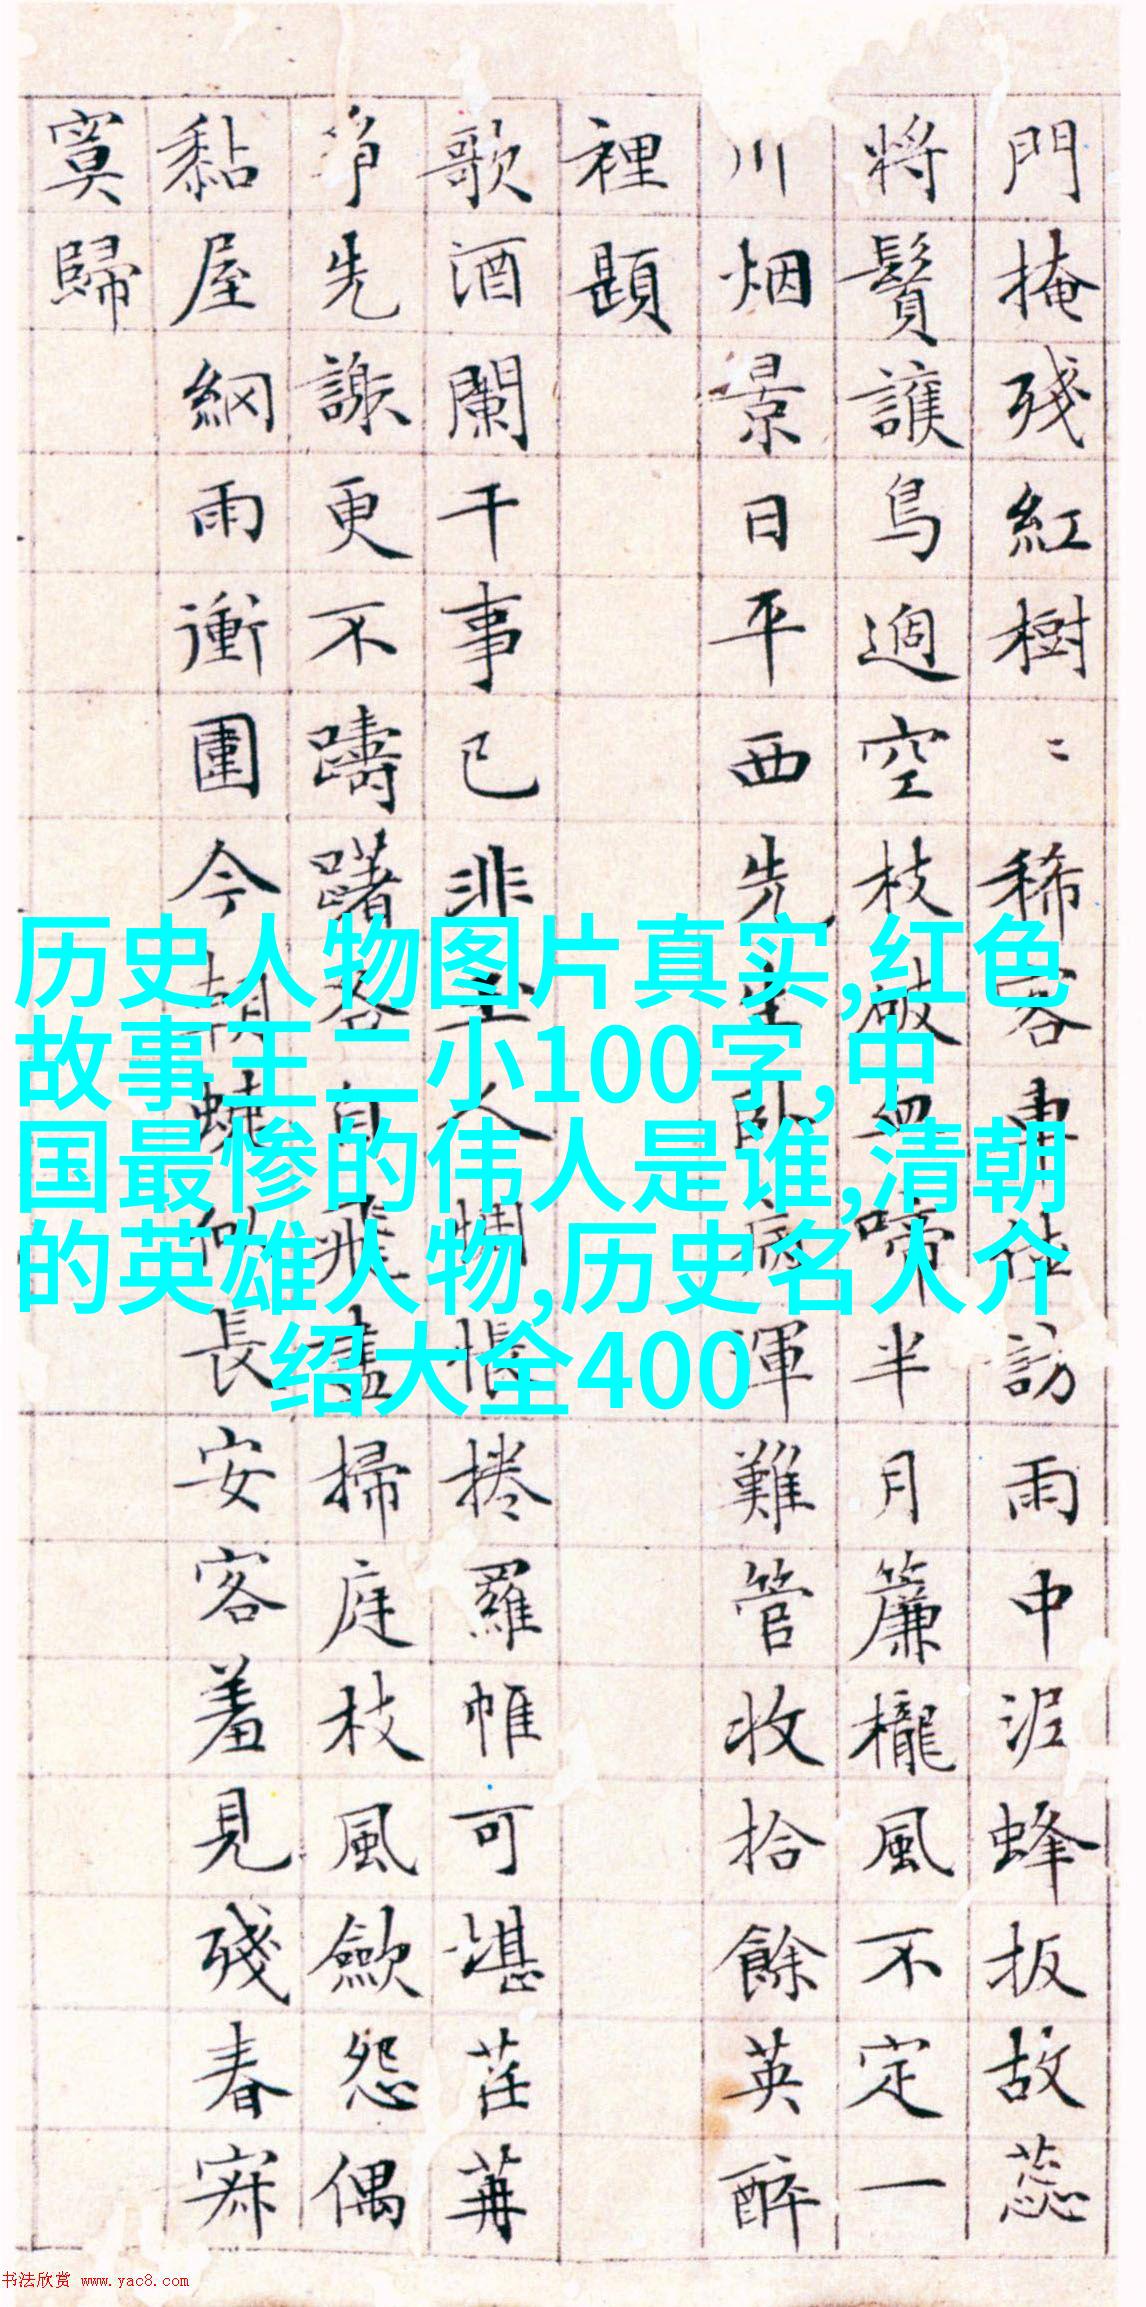 門掩殘紅樹〻稀客車訪雨中泥蜂扳故蕊
將鬢護鳥過空枝破血啼半月簾櫳風不定一
川烟景日平西先生卧病渾難管收拾餘英醉
裡題
歌酒闌干事已非主人惆悵捲羅帷可堪荏苒
爭先謝更不躊躇各自飛盡掃庭枝風歛怨偶
黏屋網雨衝圍今朝似長安客羞見殘春寂
寞歸
历史人物图片真实,红色
故事王二小100字,中
国最惨的伟人是谁,清朝
的英雄人物,历史名人介
绍大全400
书法欣赏 www.yac8.com